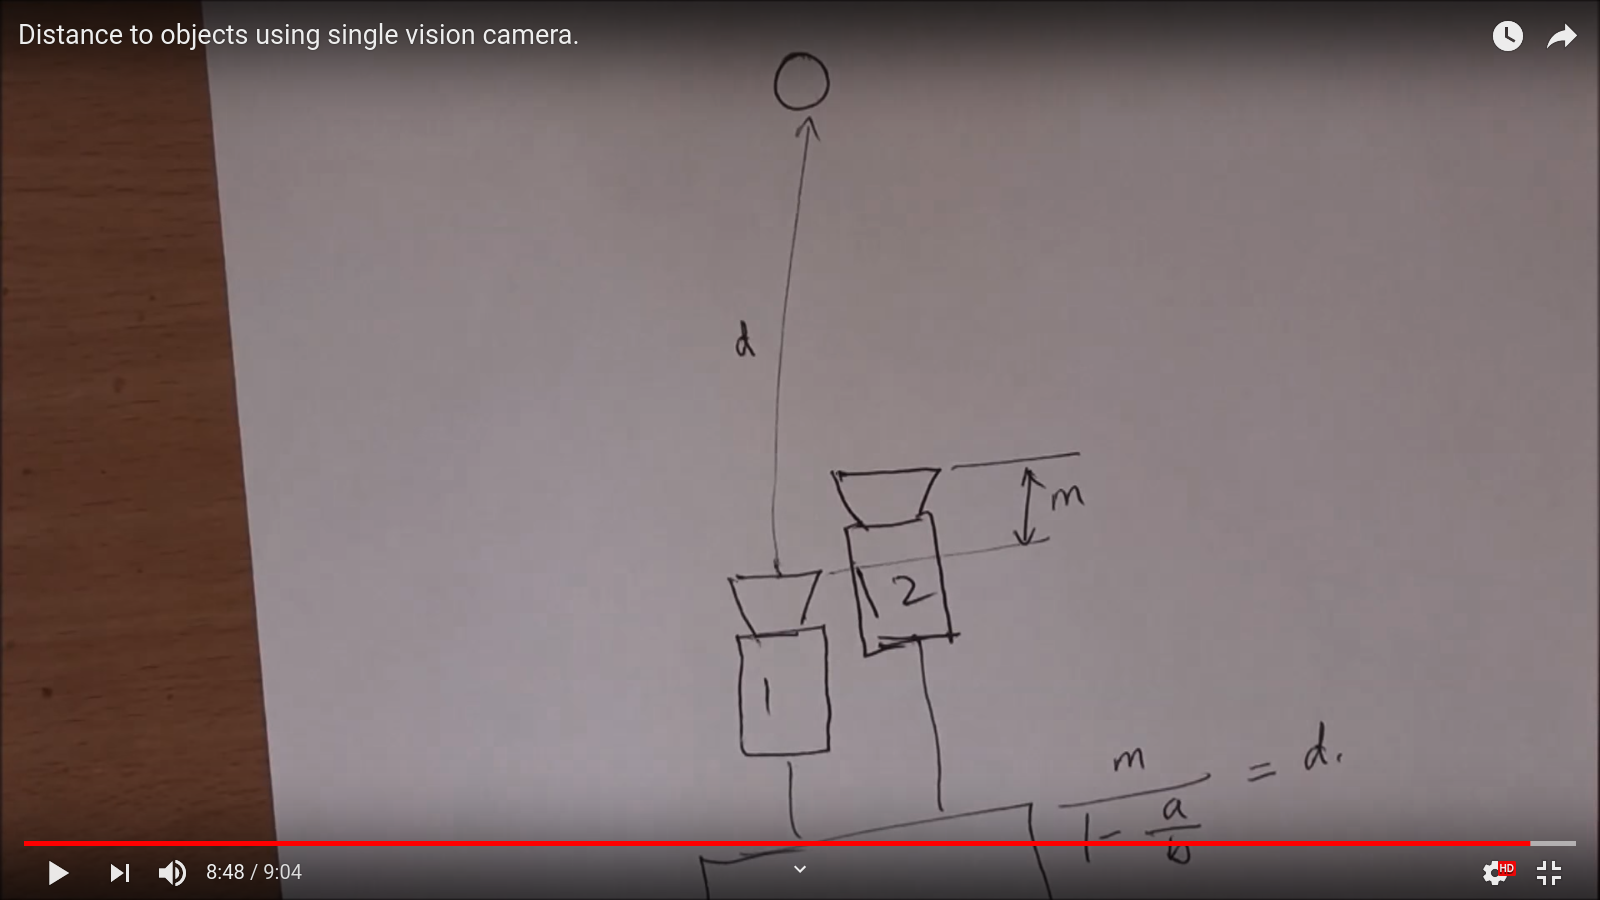 Distance to objects using single vision camera.
d
m
2
1
m
1 - a = d.
b
8:48 / 9:04
HD